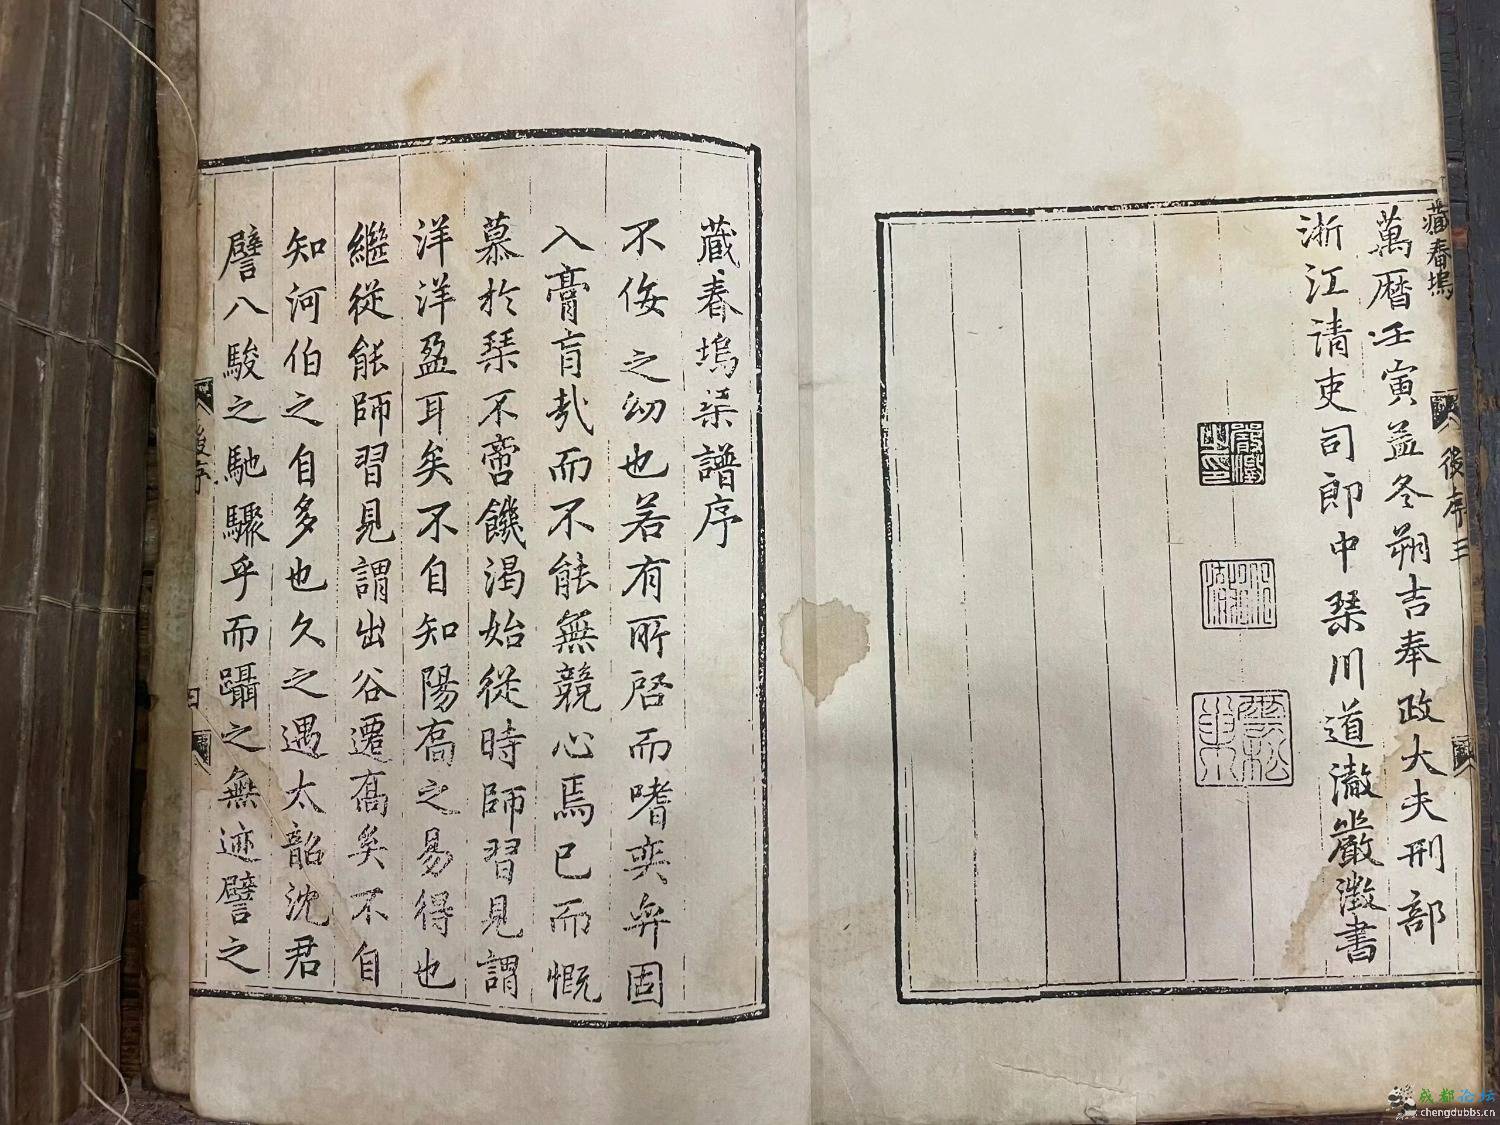 藏春塢
後序三
萬曆壬寅孟冬朔吉奉政大夫刑部
浙江清吏司郎中琹川道澈嚴澂書
藏春塢琹譜序
不侫之幼也若有所啓而嗜奕弈固
入膏肓哉而不能無競心焉已而慨
慕於琹不啻饑渴始從時師習見謂
洋洋盈耳矣不自知陽髙之易得也
繼從能師習見謂出谷遷髙矣不自
知河伯之自多也久之遇太韶沈君
譬八駿之馳驟乎而躡之無迹譬之
後序
四
成都论坛
chengdubbs.cn